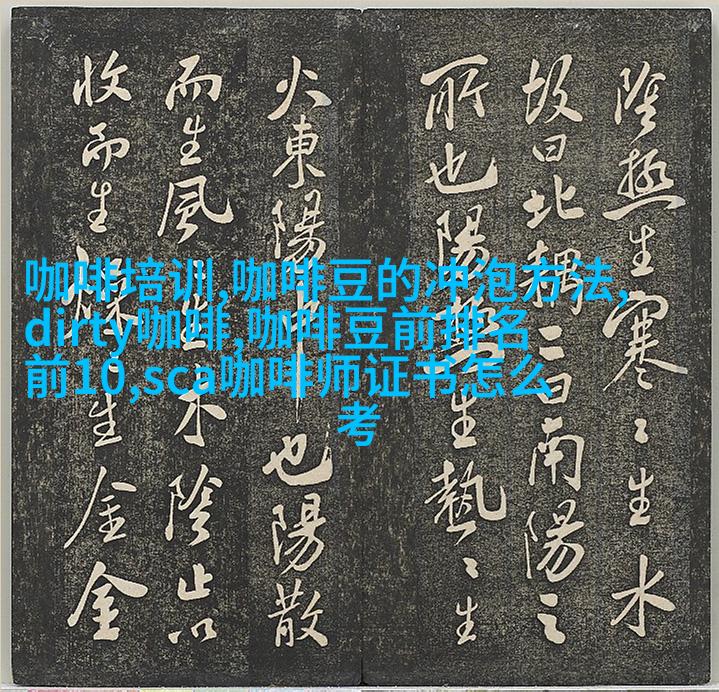 咖啡培训,咖啡豆的冲泡方法,
dirty咖啡,咖啡豆前排名
前10,sca咖啡师证书怎么
考
陰極生寒〻生水
故曰北耦二曰南陽之
所也陽極生熱〻生
火東陽中也陽散
而生風生木陰止以
收而生燥生金金